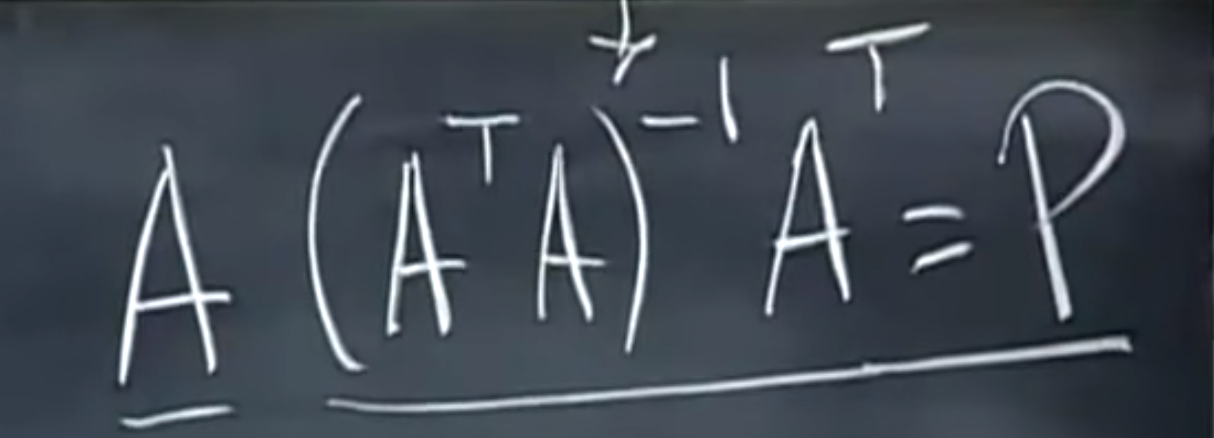 A (AᵀA)⁻¹ Aᵀ = P